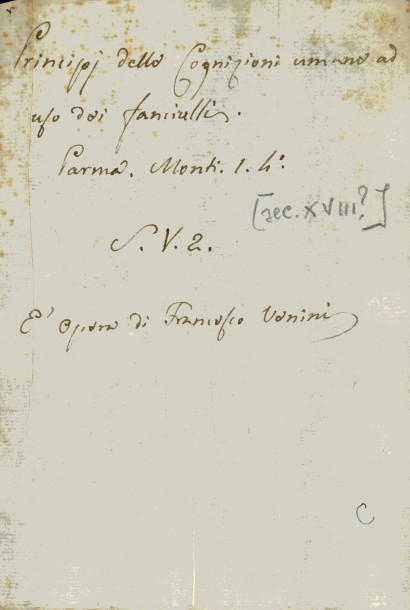 Principj delle Cognizioni umane ad
uso dei fanciulli.
Parma. Monti. 1. 4°.
[sec. XVIII?]
S. V. 2.
E' opera di Francesco Vanini
C